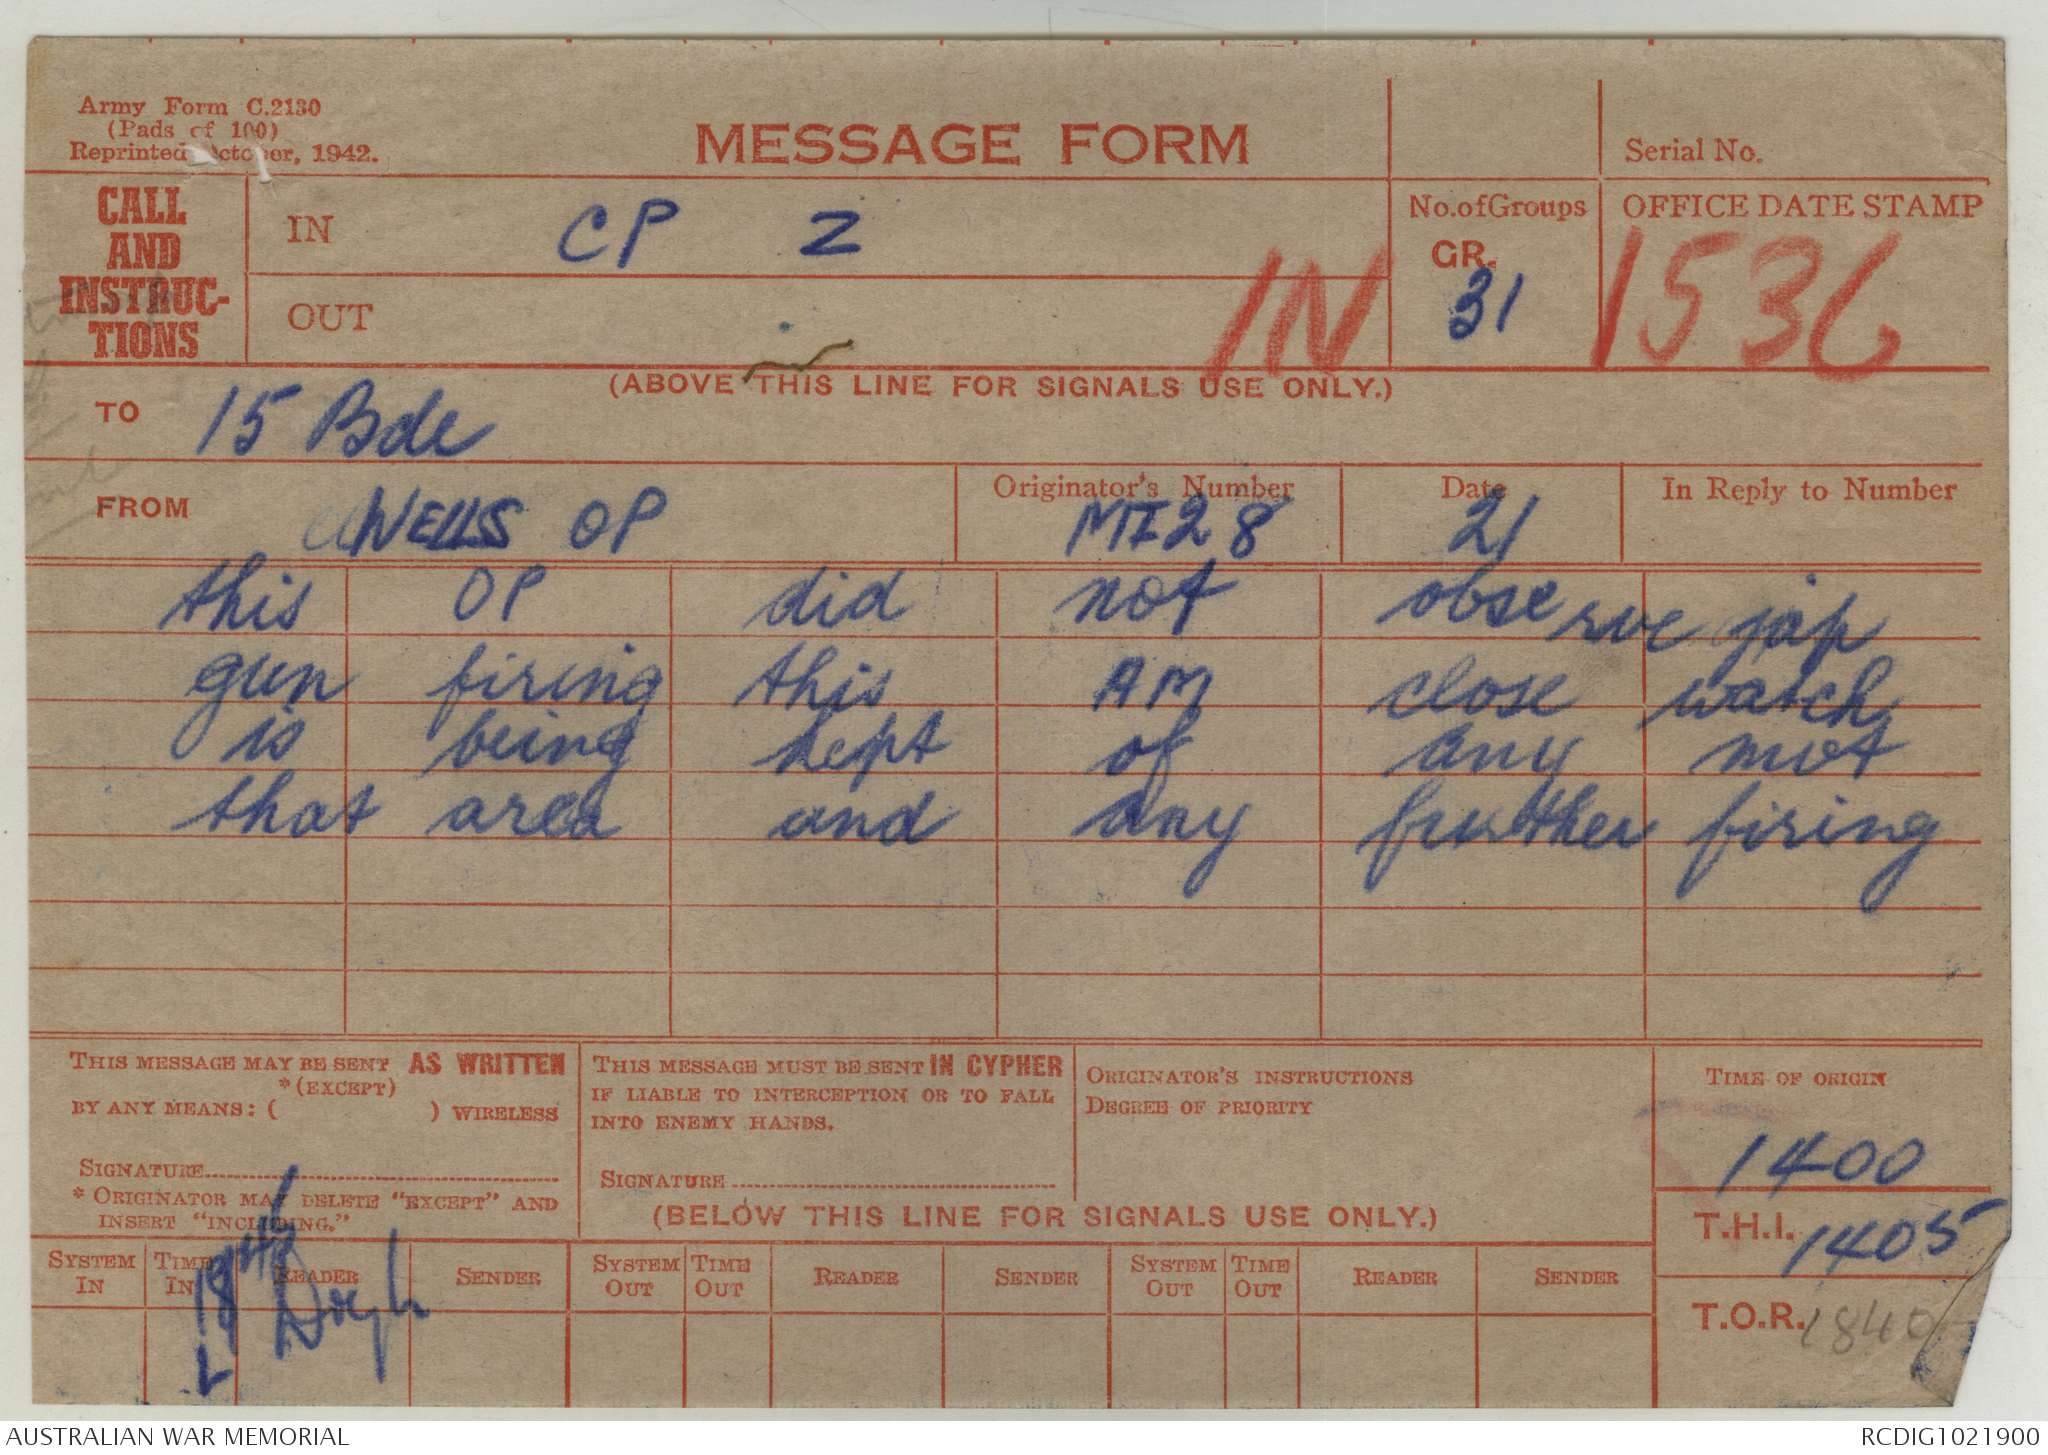 Army Form C.2130
(Pads of 100)
Reprinted October, 1942.
MESSAGE FORM
Serial No.
CALL AND INSTRUC-TIONS
IN CP Z
OUT
IN
No. of Groups
GR. 31
OFFICE DATE STAMP
1536
(ABOVE THIS LINE FOR SIGNALS USE ONLY.)
TO 15 Bde
FROM WELLS OP
Originator's Number MI28
Date 21
In Reply to Number
this OP did not observe jap
gun firing this AM close watch
is being kept of any mvt
that area and any further firing
THIS MESSAGE MAY BE SENT AS WRITTEN
*(EXCEPT)
BY ANY MEANS: ( ) WIRELESS
SIGNATURE
* ORIGINATOR MAY DELETE "EXCEPT" AND
INSERT "INCLUDING."
THIS MESSAGE MUST BE SENT IN CYPHER
IF LIABLE TO INTERCEPTION OR TO FALL
INTO ENEMY HANDS.
SIGNATURE
ORIGINATOR'S INSTRUCTIONS
DEGREE OF PRIORITY
TIME OF ORIGIN
1400
(BELOW THIS LINE FOR SIGNALS USE ONLY.)
T.H.I. 1405
T.O.R. 1840
SYSTEM IN TIME IN READER SENDER SYSTEM OUT TIME OUT READER SENDER SYSTEM OUT TIME OUT READER SENDER
AUSTRALIAN WAR MEMORIAL
RCDIG1021900